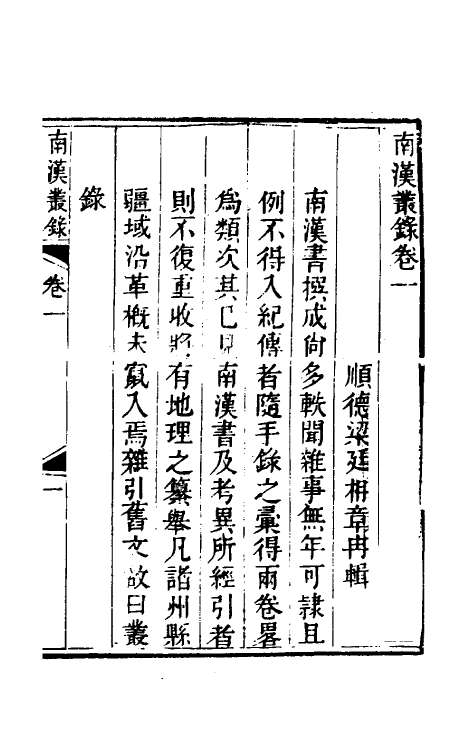 南漢叢錄卷一
順德梁廷枏章冉輯
南漢書撰成尙多軼聞雜事無年可隸且
例不得入紀傳者隨手錄之彚得兩卷畧
爲類次其已見南漢書及考異所經引者
則不復重收將有地理之纂舉凡諸州縣
疆域沿革槪未竄入焉雜引舊文故曰叢
錄
南漢叢錄
卷一
一